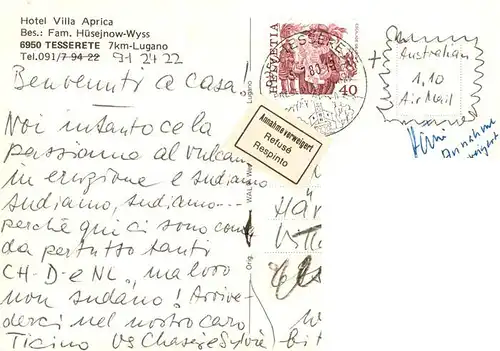 Hotel Villa Aprica
Bes.: Fam. Hüsejnow-Wyss
6950 TESSERETE 7km-Lugano
Tel.091/7 94 22 91 24 22
Benvenuti a casa!
Noi intanto ce la
passiamo al vulcano
in eruzione e sudiamo
sudiamo, sudiamo...
perchè qui ci sono
da pertutto tanti
CH-D-e NL, ma loro
non sudano! Arrive-
derci nel nostro caro
Ticino
Lugano
Orig.
HELVETIA
40
TESSERETE
Annahme verweigert
Refusé
Respinto
+
Australian
1,10
Air Mail
Annahme
Här